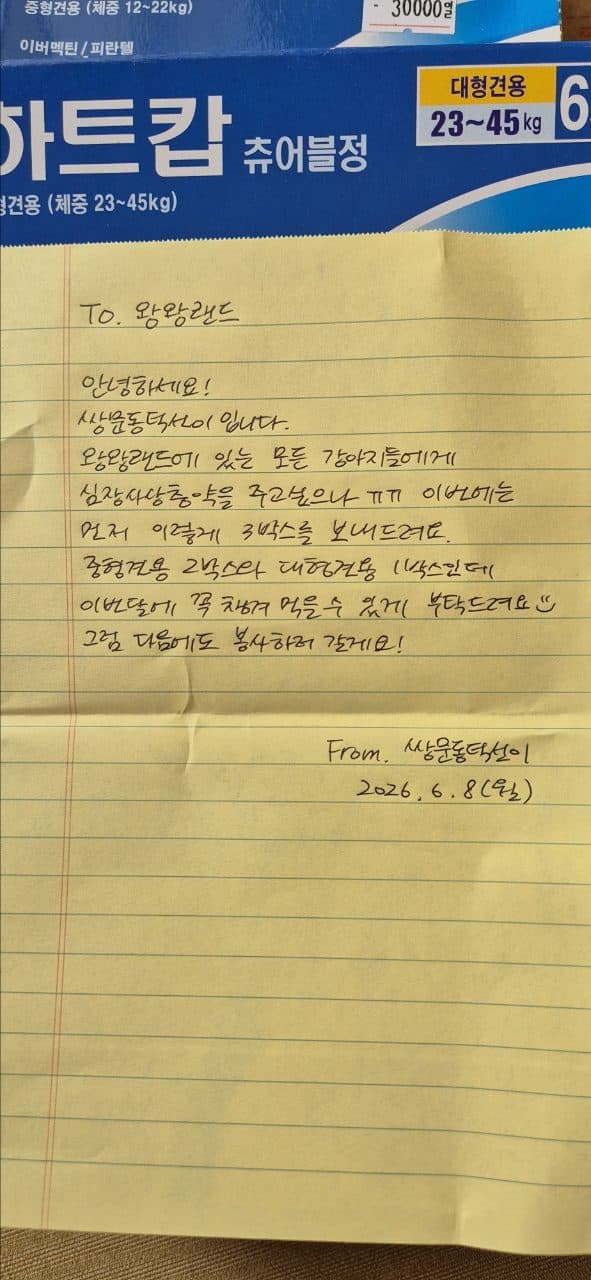 중형견용 (체중 12~22kg)
- 30000원
이버멕틴/피란텔
하트캅 츄어블정
대형견용
23~45kg
6
형견용 (체중 23~45kg)
To. 왕왕랜드
안녕하세요!
쌍문동덕선이입니다.
왕왕랜드에 있는 모든 강아지들에게
심장사상충약을 주고싶으나 ㅠㅠ 이번에는
먼저 이렇게 3박스를 보내드려요.
중형견용 2박스와 대형견용 1박스인데
이번달에 꼭 챙겨 먹을수 있게 부탁드려요
그럼 다음에도 봉사하러 갈게요!
From. 쌍문동덕선이
2026. 6. 8(월)